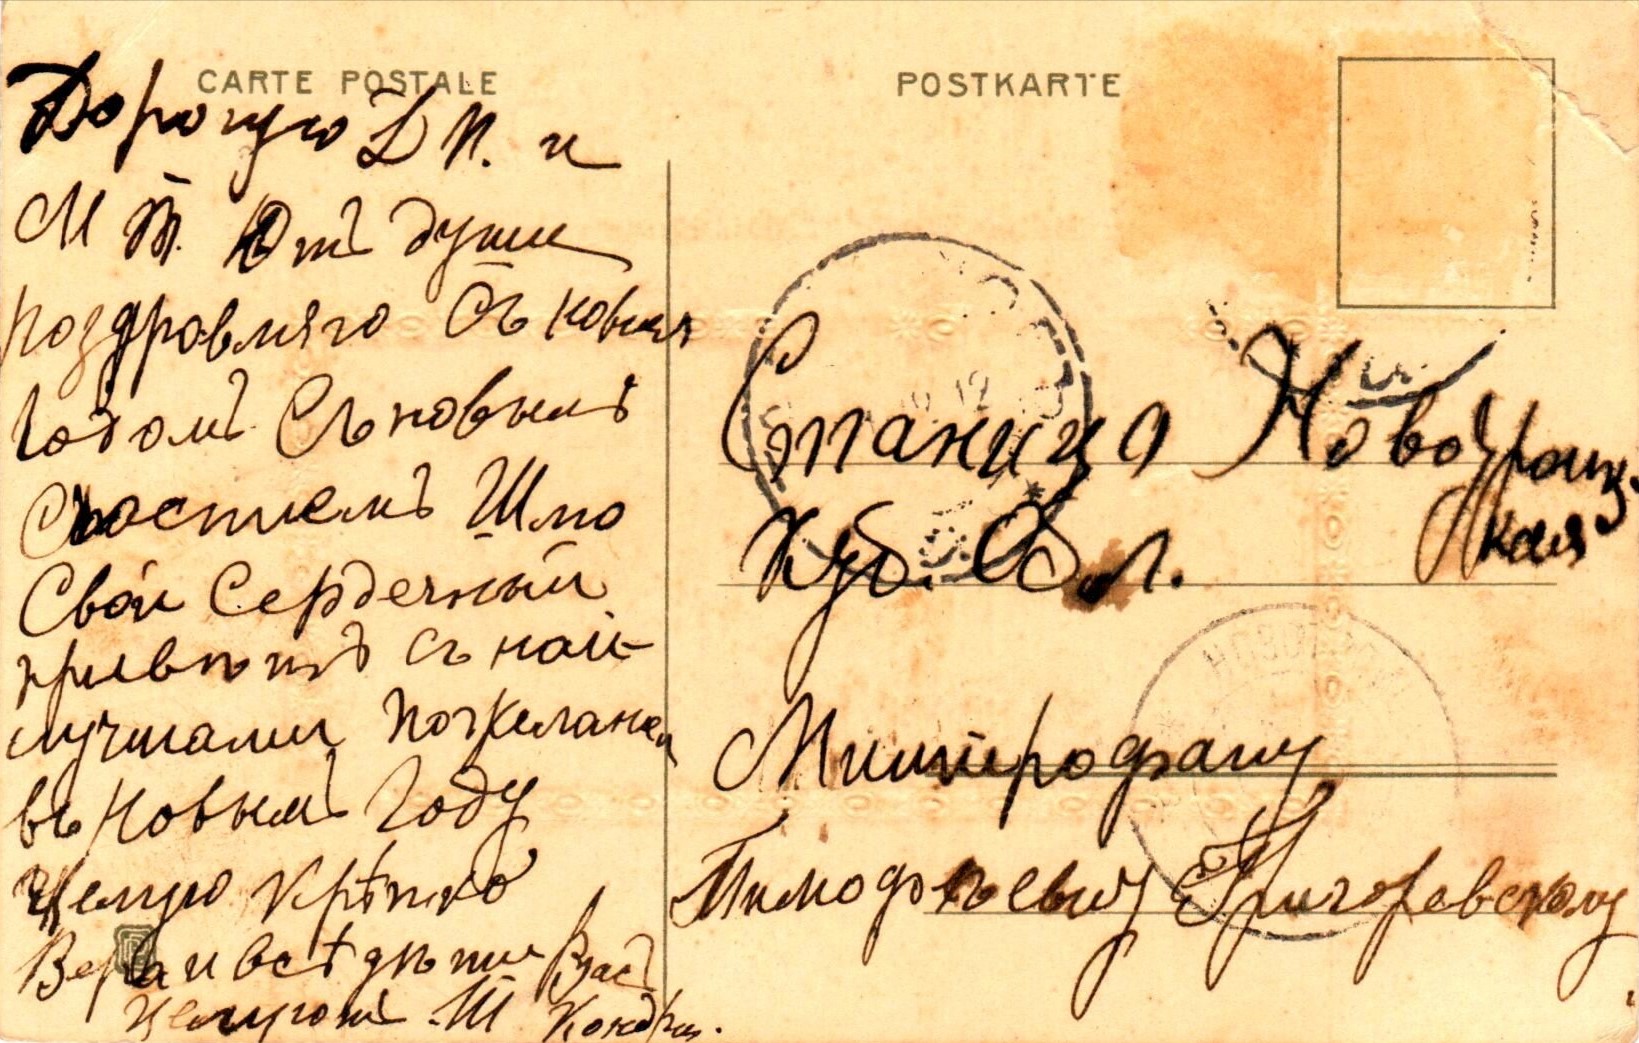 CARTE POSTALE
POSTKARTE
Дорогую Д П. и
М Т. Отъ души
поздровляю Съ новым
Годомъ Съ новымъ
Счастiемъ Шлю
Свой Сердечный
привѣтъ съ най-
лучшами пожелание
въ Новымъ Году
Целую Крѣпко
Вера и всѣ дѣти Васъ
целуютъ Ш Кондра.
Станица Новотроиц-
кая
Куб. Обл.
Митрофану
Тимофѣевичу Григоревскому